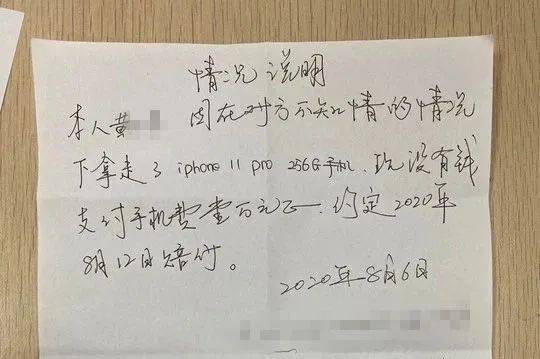 情况说明
本人黄 因在对方不知情的情况
下拿走了 iphone 11 pro 256G手机. 现没有钱
支付手机费壹万元正. 约定2020年
8月12日赔付。
2020年8月6日